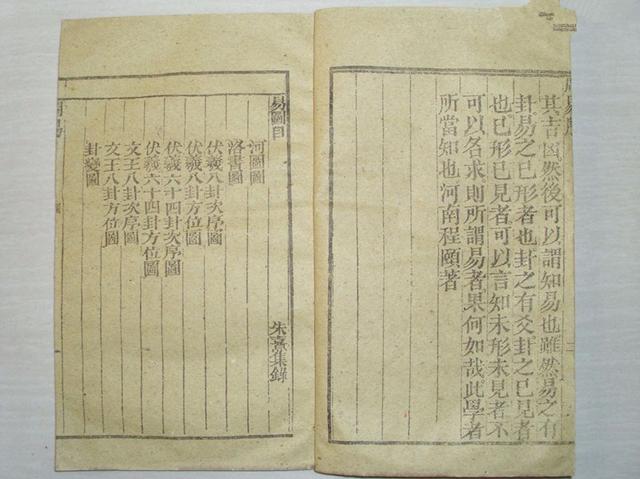 其吉凶然後可以謂知易也雖然易之有
卦易之已形者也卦之有爻卦之已見者
也已形已見者可以言知未形未見者不
可以名求則所謂易者果何如哉此學者
所當知也河南程頤著
易圖目
朱熹集錄
河圖圖
洛書圖
伏羲八卦次序圖
伏羲八卦方位圖
伏羲六十四卦次序圖
伏羲六十四卦方位圖
文王八卦次序圖
文王八卦方位圖
卦變圖